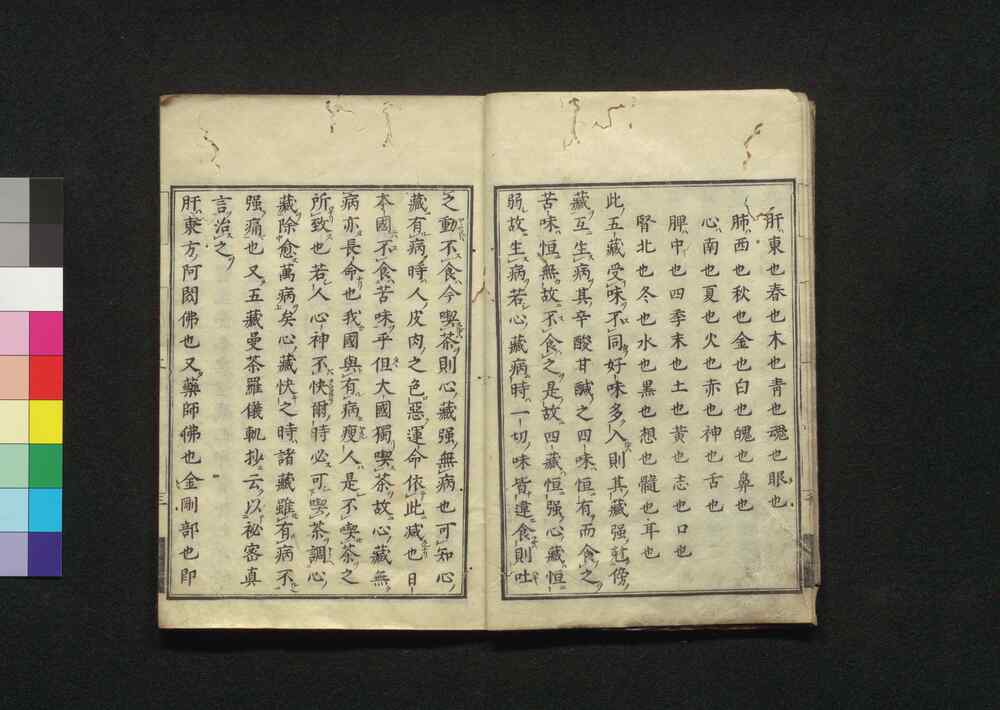 肝東也春也木也青也魂也眼也
肺西也秋也金也白也魄也鼻也
心南也夏也火也赤也神也舌也
脾中也四季末也土也黄也志也口也
腎北也冬也水也黒也想也髓也耳也
此五藏受味不同好味多入則其藏强尅傍
藏互生病其辛酸甘鹹之四味恒有而食之
苦味恒無故不食之是故四藏恒强心藏恒
弱故生病若心藏病時一切味皆違食則吐
之動不食今喫茶則心藏强無病也可知心
藏有病時人皮肉之色惡運命依此减也日
本國不食苦味乎但大國獨喫茶故心藏無
病亦長命也我國與有病瘦人是不喫茶之
所致也若人心神不快爾時必可喫茶調心
藏除愈萬病矣心藏快之時諸藏雖有病不
强痛也又五藏曼荼羅儀軌抄云以祕密真
言治之
肝東方阿閦佛也又藥師佛也金剛部也即